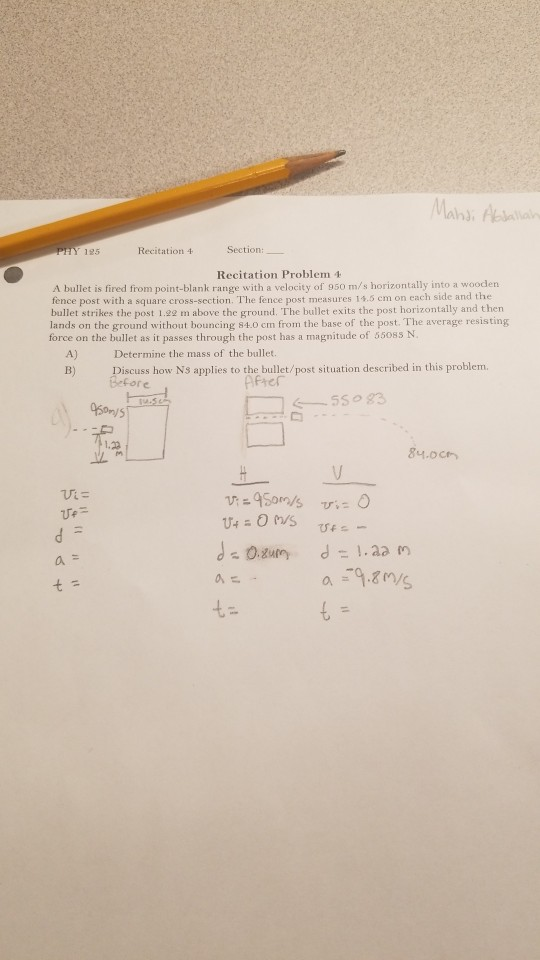 Mahdi Abdallah
PHY 125 Recitation 4 Section: __
Recitation Problem 4
A bullet is fired from point-blank range with a velocity of 950 m/s horizontally into a wooden
fence post with a square cross-section. The fence post measures 14.5 cm on each side and the
bullet strikes the post 1.22 m above the ground. The bullet exits the post horizontally and then
lands on the ground without bouncing 84.0 cm from the base of the post. The average resisting
force on the bullet as it passes through the post has a magnitude of 55083 N.
A) Determine the mass of the bullet.
B) Discuss how N3 applies to the bullet/post situation described in this problem.
Before After
a) 950m/s 14.5cm 55083
1.22
m
84.0cm
H V
vi= vi = 950m/s vi = 0
vf= vf = 0 m/s vf = -
d = d = 0.84m d = 1.22 m
a = a = - a = -9.8m/s
t = t = t =